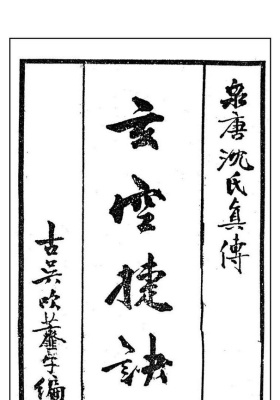 泉唐沈氏真傳
玄空捷訣
古吳吹虀子編